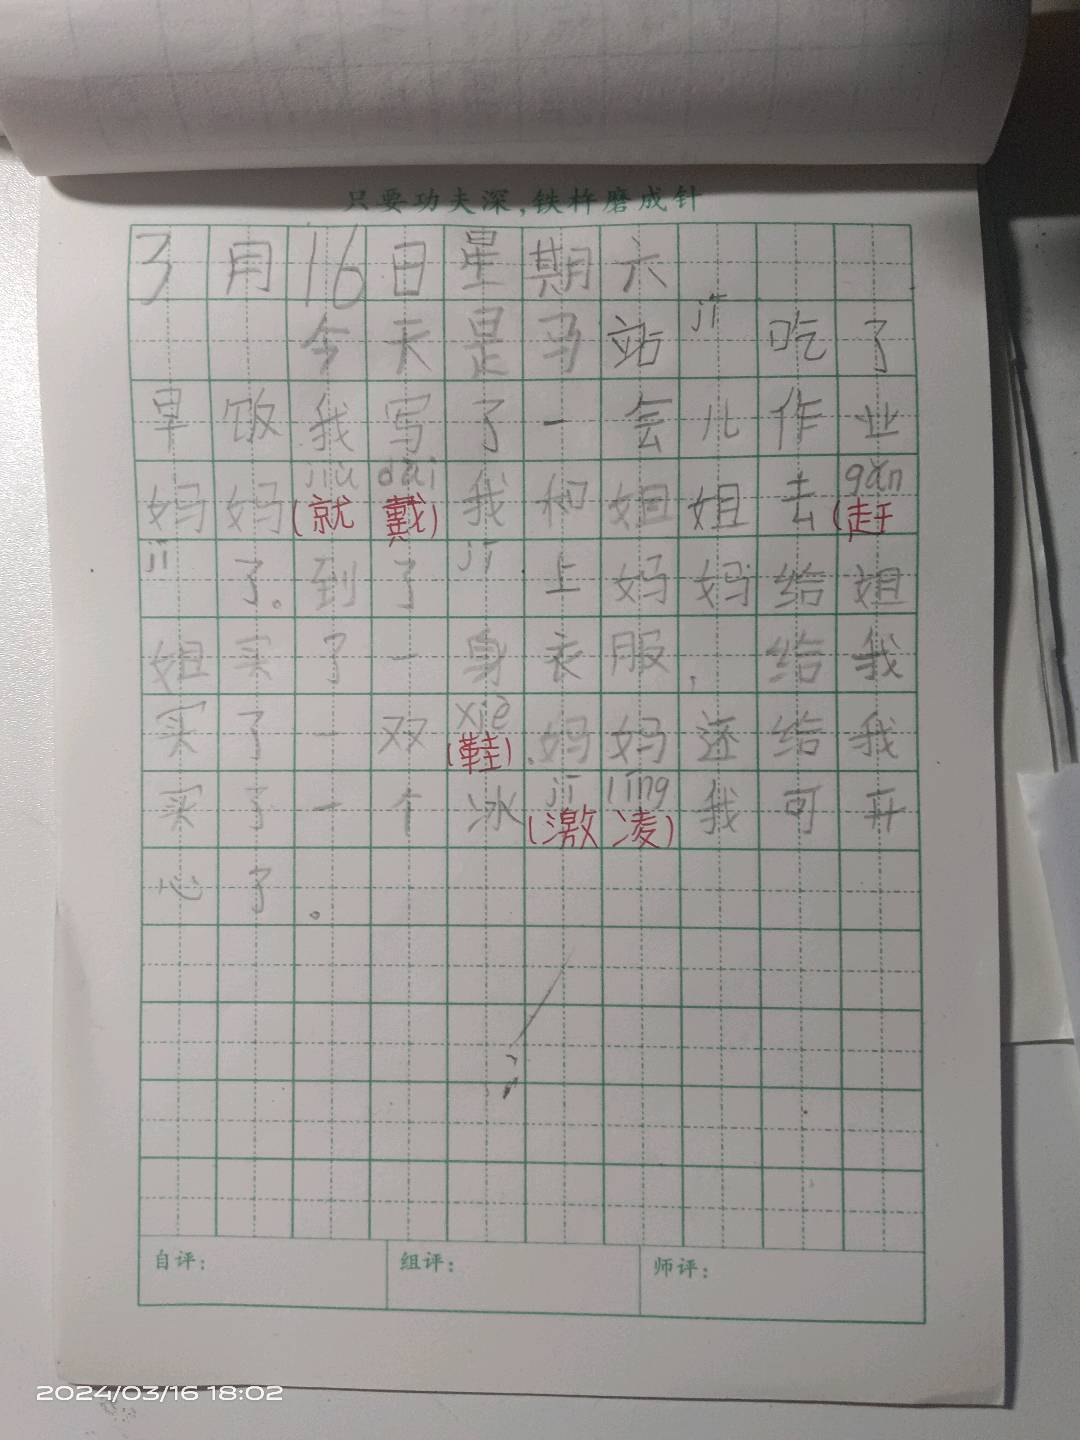 只要功夫深,铁杵磨成针
3月16日星期六
今天是马站jí吃了
早饭我写了一会儿作业
妈妈jiù(就dài戴)我和姐姐去gǎn(赶
jí了。到了jí上妈妈给姐
姐买了一身衣服,给我
买了一双xié(鞋).妈妈还给我
买了一个冰jī(激líng凌)我可开
心了。
自评: 组评: 师评:
2024/03/16 18:02